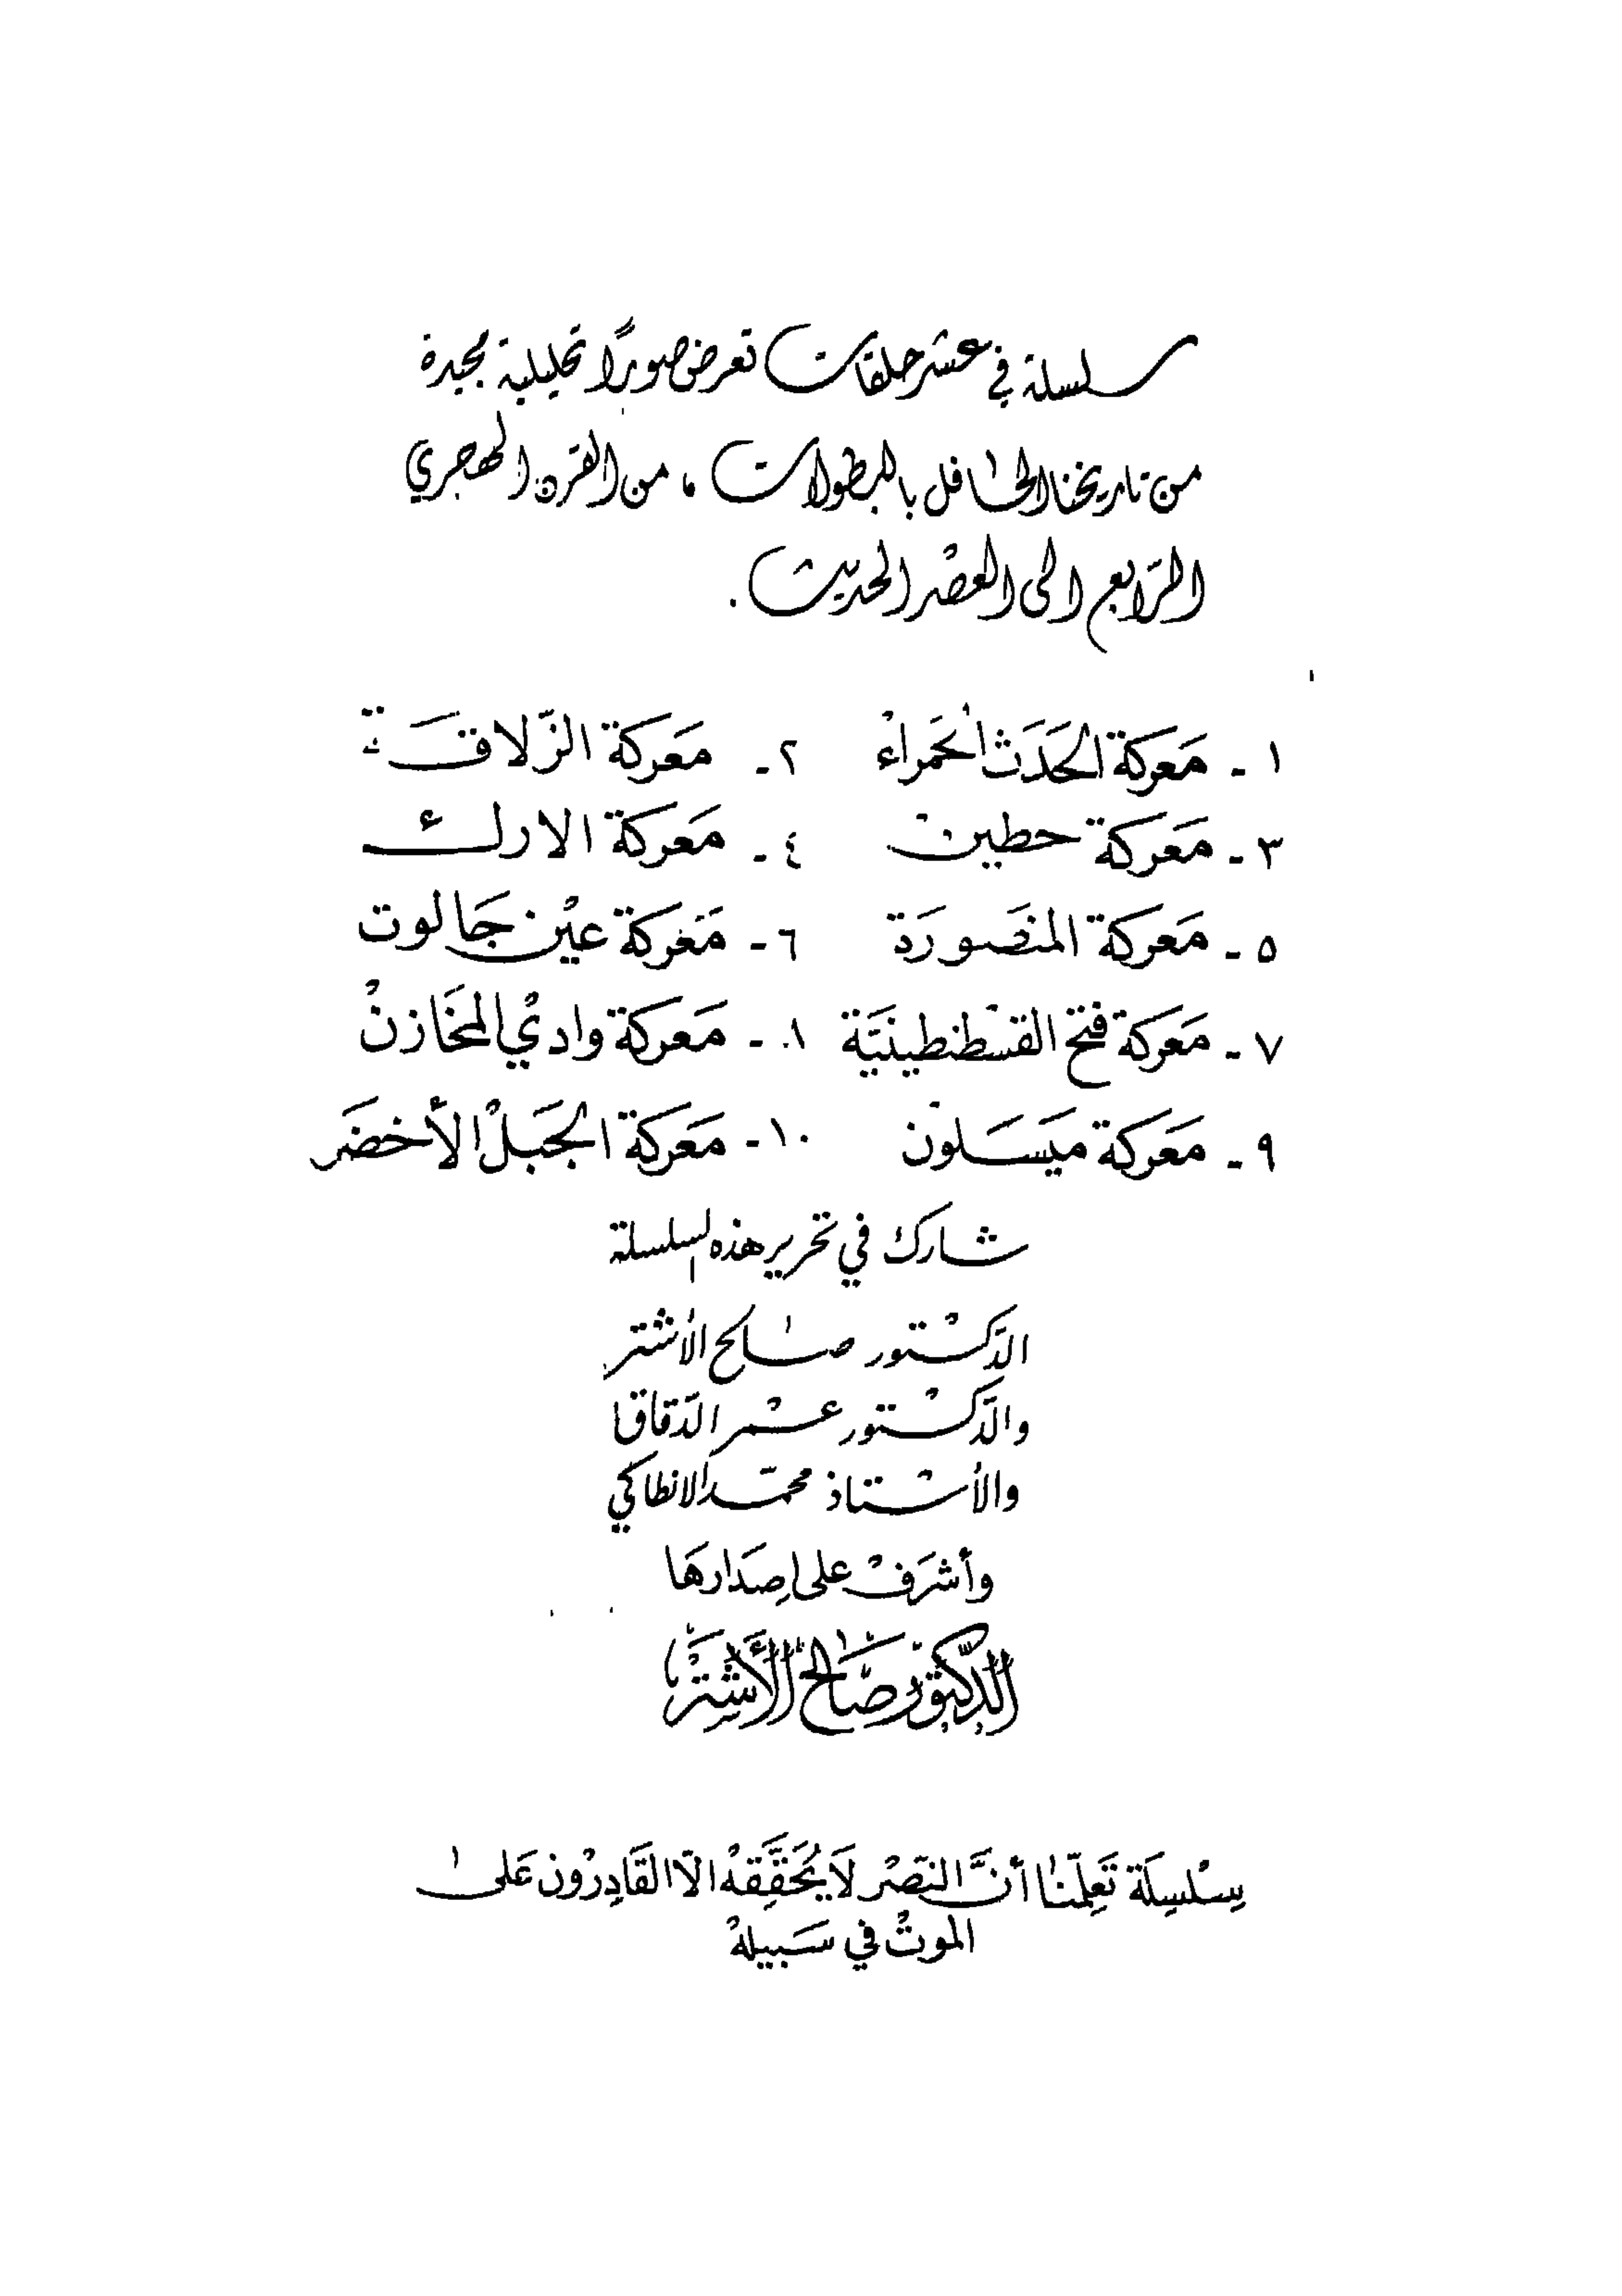 سلسلة في عشر حلقات تعرض صورًا تحليلية مجيدة
من تاريخنا الحافل بالبطولات ، من القرن الهجري
الرّابع الى العصْر الحديث .
١ - مَعركة الحَدَث الحَمراء ٢ - مَعركة الزّلاقَة
٣ - مَعركة حطين ٤ - مَعركة الارك
٥ - مَعركة المنصَورَة ٦ - مَعركة عيْن جَالوت
٧ - مَعركة فتح القسْطنطينيَّة ٨ - مَعركة واديْ المخَازنْ
٩ - مَعركة ميَسَلون ١٠ - مَعركة الجَبَلْ الأخضَر
شارك في تحرير هذه السلسلة
الدَّكتْور صالح الأشتر
والدَّكتْور عمْر الدّقاق
والأستْاذ محمّد الانطاكي
وأشرَفْ على إصدَارهَا
الدّكتور صَالح الأَشتَر
سِلْسِلَة تَعلِمّنا أنَّ النّصْر لاَ يُحَقِّقهْ الاّ القَادِرْون عَلى
الموتْ في سَبيلهْ